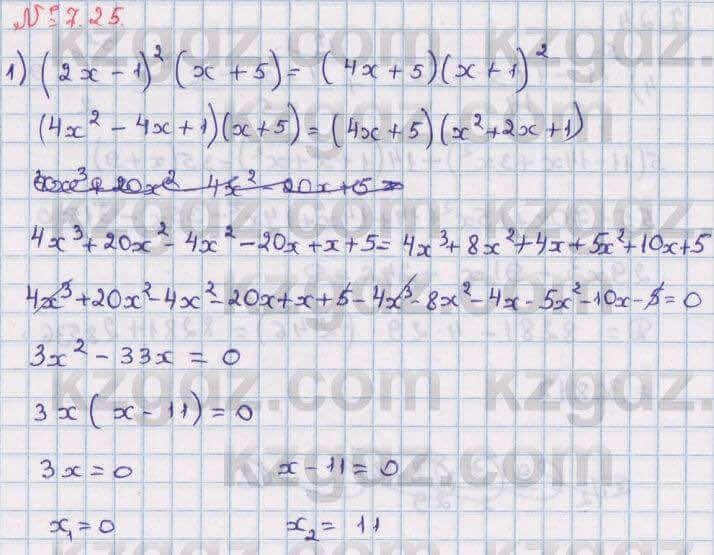 № 7.25.
1) (2x - 1)² (x + 5) = (4x + 5)(x + 1)²
(4x² - 4x + 1)(x + 5) = (4x + 5)(x² + 2x + 1)
4x³ + 20x² - 4x² - 20x + x + 5 = 4x³ + 8x² + 4x + 5x² + 10x + 5
4x³ + 20x² - 4x² - 20x + x + 5 - 4x³ - 8x² - 4x - 5x² - 10x - 5 = 0
3x² - 33x = 0
3x(x - 11) = 0
3x = 0 x - 11 = 0
x₁ = 0 x₂ = 11
kzgdz.com